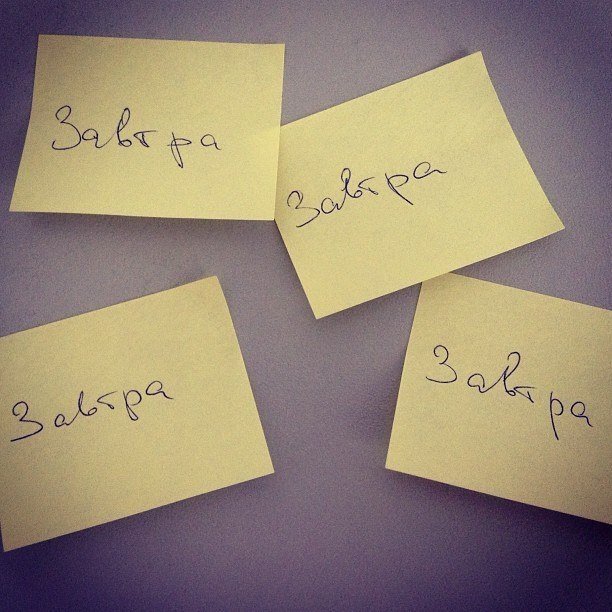 Завтра
Завтра
Завтра
Завтра